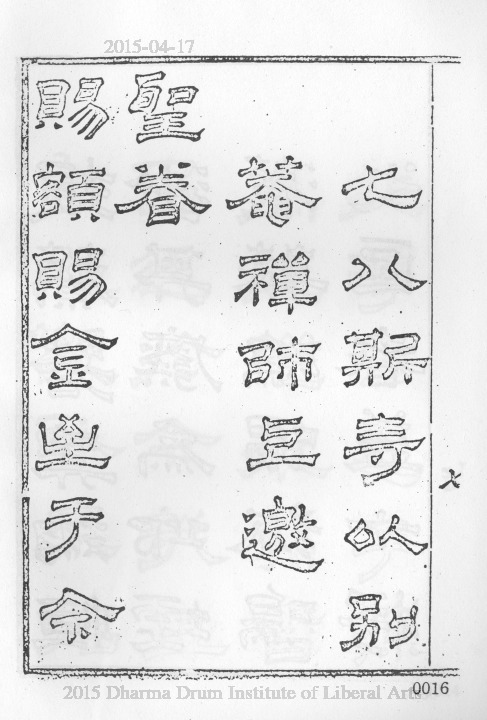 2015-04-17
七八斯奇以別
菴禪師巨邀
聖眷
賜額賜金至于今
七
2015 Dharma Drum Institute of Liberal Arts
0016